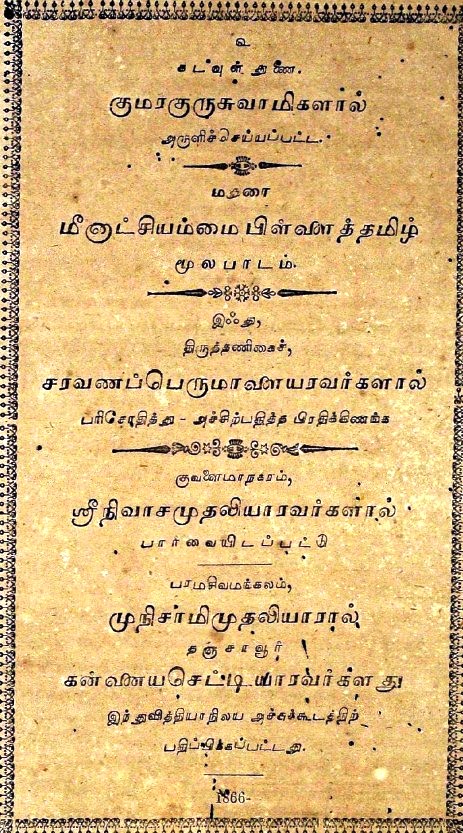 உ
கடவுள் துணை.
குமரகுருசுவாமிகளால்
அருளிச்செய்யப்பட்ட.
மதுரை
மீனாட்சியம்மை பிள்ளைத்தமிழ்
மூலபாடம்.
இஃது,
திருத்தணிகைச்,
சரவணப்பெருமாளையரவர்களால்
பரிசோதித்து - அச்சிற்பதித்த பிரதிக்கிணங்க
குவளைமாநகரம்,
ஸ்ரீநிவாசமுதலியாரவர்களால்
பார்வையிடப்பட்டு
பரமசிவமங்கலம்,
முநிசாமிமுதலியாரால்
தஞ்சாவூர்
கன்னையசெட்டியாரவர்களது
இந்துவித்தியாநிலய அச்சுக்கூடத்திற்
பதிப்பிக்கப்பட்டது.
1866-